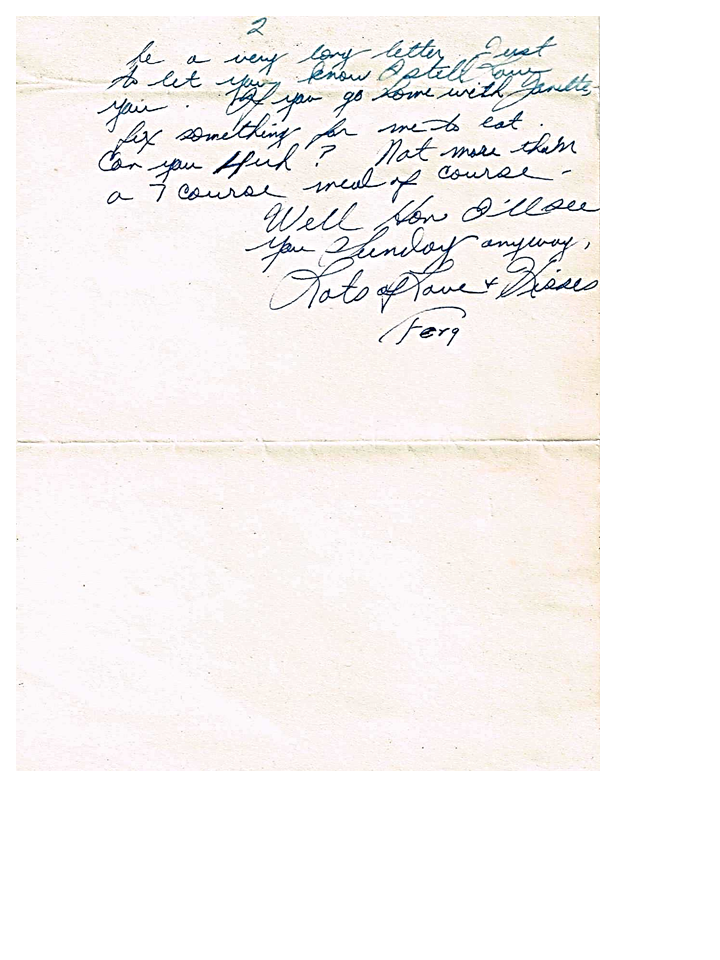 2
be a very long letter. Just
to let you know I still love
you. If you go home with Janette
fix something for me to eat.
Can you Hud? Not more than
a 7 course meal of course -
Well Hon I'll see
you Sunday anyway,
Lots of Love & Kisses
Ferg